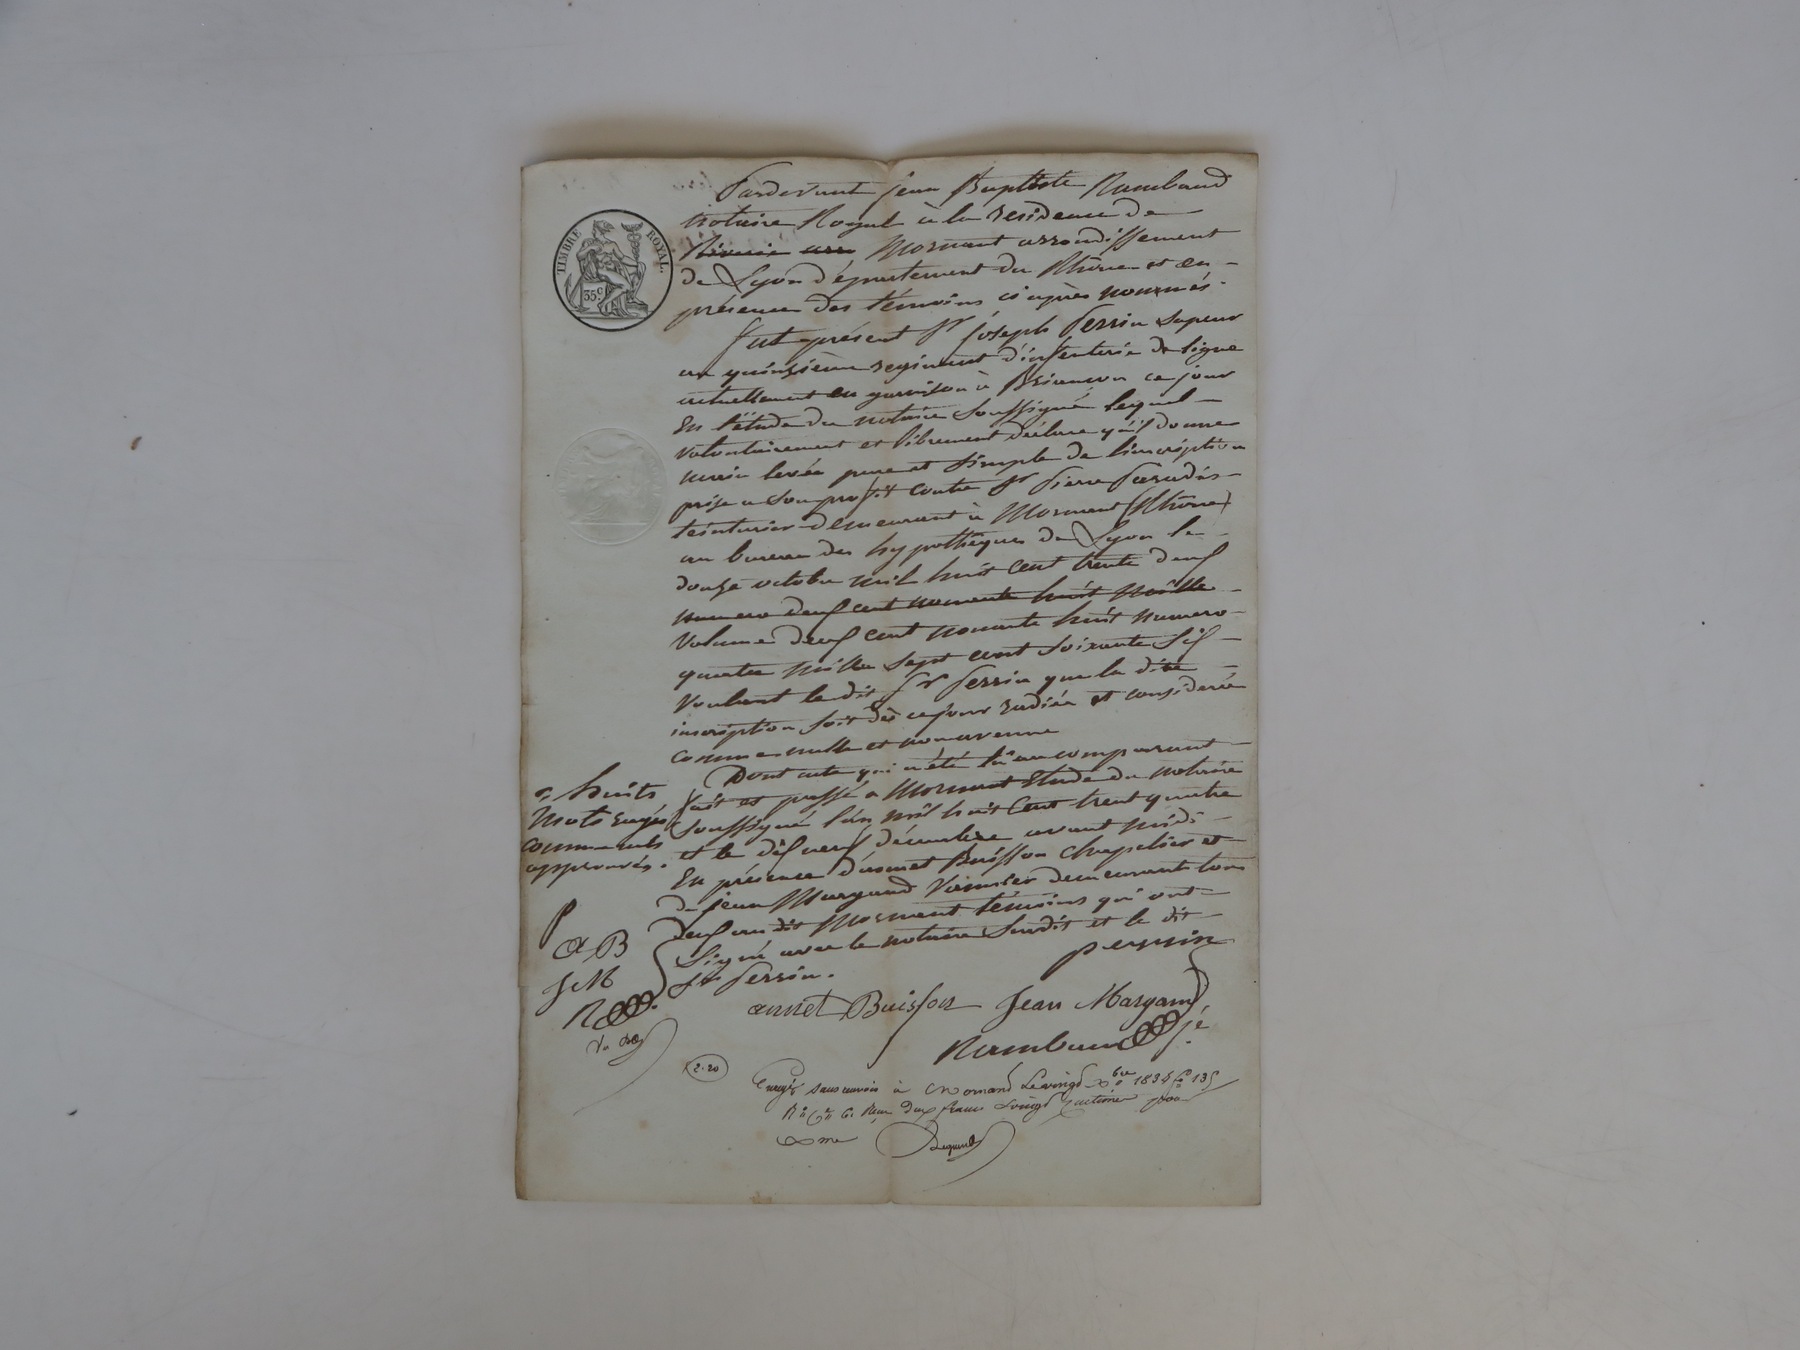 Pardevant Jean Baptiste Rambaud
notaire Royal à la residence de
TIMBRE ROYAL.
35c
Riverie arr Mornant arrondissement
de Lyon département du Rhône et en
présence des témoins ci après nommés.
fut présent Sr joseph Perrin sapeur
au quinzième regiment d'infenterie de ligne
actuellement en garnison à Briancon ce jour
En l'étude du notaire soussigné lequel
volontairement et librement déclare qu'il donne
main levée pure et simple de l'inscription
prise a son profit contre Sr Pierre
teinturier demeurant à Mornant (Rhône)
au bureau des hypothèques de Lyon le
douze octobre mil huit cent trente deux
numero deux cent nonante huit mille
Volume deux cent nonante huit numero
quatre mille sept cent soixante six
Voulant le dit Sr Perrin que la dite
inscription soit dès ce jour radiée et considerée
comme nulle et non avenue
Dont acte qui a été lû au comparant
fait et passé a Mornant Etude du notaire
soussigné l'an mil huit cent trent quatre
et le dix neuf décembre avant midi
En présence d'annet Buisson chapelier et
de jean Margand Vannier demeurant tous
deux au dit Mornant témoins qui ont
signé avec le notaire susdit et le dit
Sr Perrin.
huits
mots rayés
comme nuls
approuvés.
P
a B
J M
R
perrin
annet Buisson Jean Margand
Rambaud
2.20
Enregé sans renvoi à Mornant le vingt Xbre 1834 fo 135
Ro Co 6. Reçu deux francs vingt centimes pour
Xme